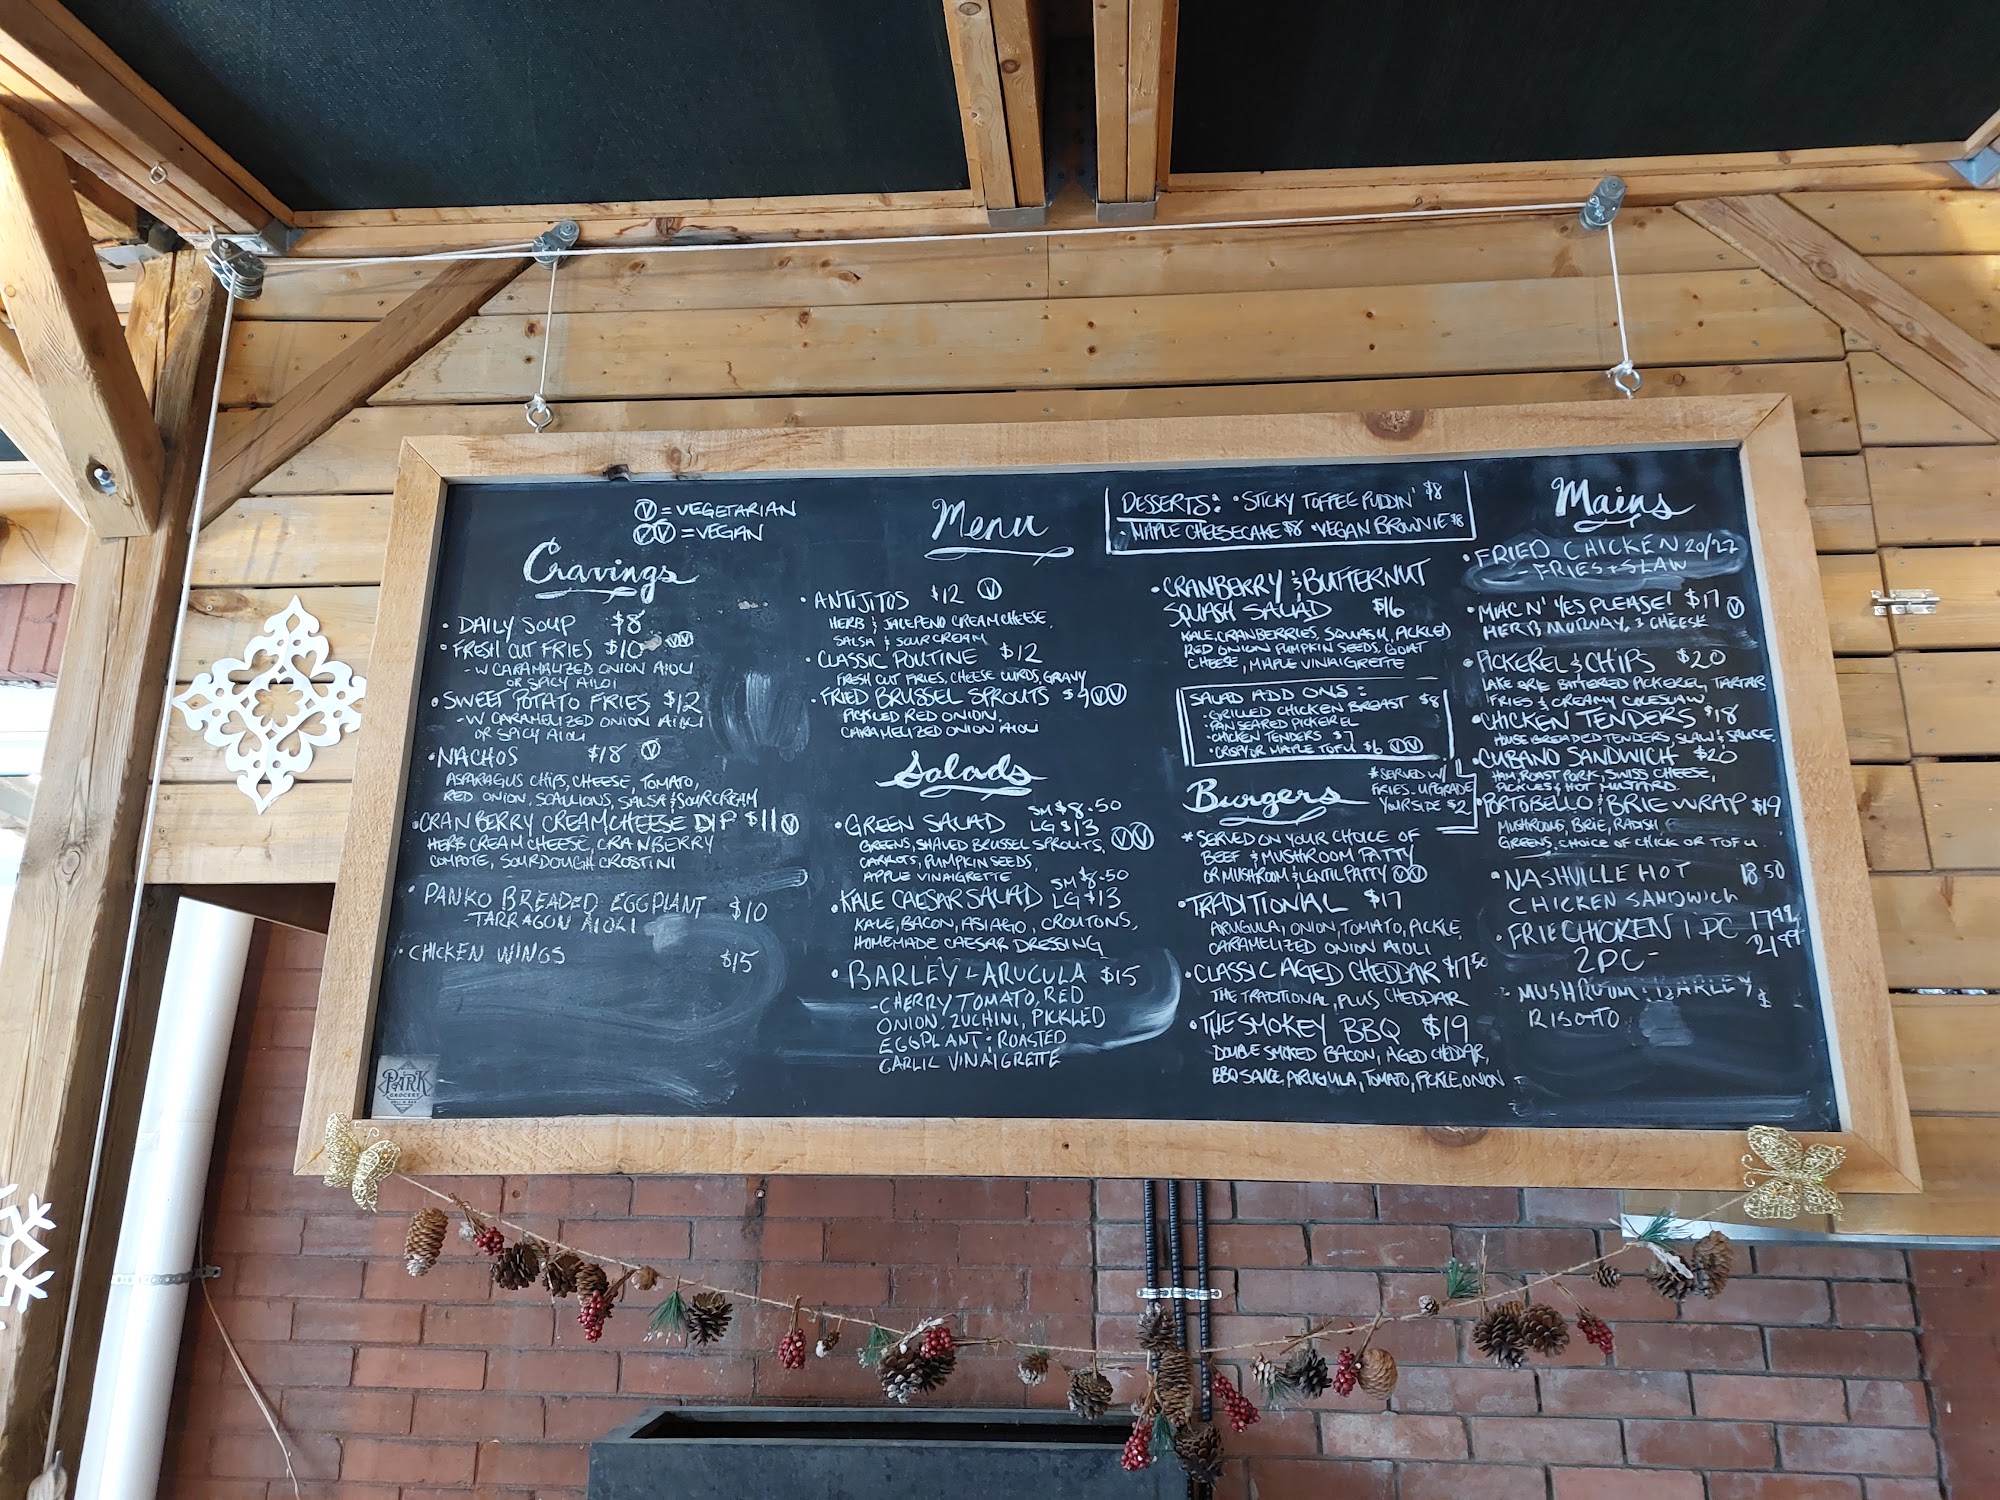 Ⓥ = VEGETARIAN
ⓋⓋ = VEGAN
Cravings
• DAILY SOUP $8
• FRESH CUT FRIES $10 ⓋⓋ
- W CARAMALIZED ONION AIOLI
OR SPICY AIOLI
• SWEET POTATO FRIES $12
- W CARAMELIZED ONION AIOLI
OR SPICY AIOLI
• NACHOS $18 Ⓥ
ASPARAGUS CHIPS, CHEESE, TOMATO,
RED ONION, SCALLIONS, SALSA & SOUR CREAM
• CRANBERRY CREAMCHEESE DIP $11 Ⓥ
HERB CREAM CHEESE, CRANBERRY
COMPOTE, SOURDOUGH CROSTINI
• PANKO BREADED EGGPLANT $10
- TARRAGON AIOLI
• CHICKEN WINGS $15
PARK
GROCERY
DELI & BAR
Menu
• ANTIJITOS $12 Ⓥ
HERB & JALEPENO CREAMCHEESE,
SALSA & SOUR CREAM
• CLASSIC POUTINE $12
FRESH CUT FRIES, CHEESE CURDS, GRAVY
• FRIED BRUSSEL SPROUTS $9 ⓋⓋ
PICKLED RED ONION,
CARAMELIZED ONION AIOLI
Salads
• GREEN SALAD SM $8.50
LG $13 ⓋⓋ
GREENS, SHAVED BRUSSEL SPROUTS,
CARROTS, PUMPKIN SEEDS,
APPLE VINAIGRETTE
• KALE CAESAR SALAD SM $8.50
LG $13
KALE, BACON, ASIAGO, CROUTONS,
HOMEMADE CAESAR DRESSING
• BARLEY + ARUGULA $15
- CHERRY TOMATO, RED
ONION, ZUCHINI, PICKLED
EGGPLANT & ROASTED
GARLIC VINAIGRETTE
DESSERTS: • STICKY TOFFEE PUDDIN' $8
• MAPLE CHEESECAKE $8 • VEGAN BROWNIE $8
• CRANBERRY & BUTTERNUT
SQUASH SALAD $16
KALE, CRANBERRIES, SQUASH, PICKLED
RED ONION PUMPKIN SEEDS, GOAT
CHEESE, MAPLE VINAIGRETTE
SALAD ADD ONS:
• GRILLED CHICKEN BREAST $8
• PAN SEARED PICKEREL
• CHICKEN TENDERS $7
• CRISPY OR MAPLE TOFU $6 ⓋⓋ
Burgers
* SERVED W/
FRIES. UPGRADE
YOUR SIDE $2
* SERVED ON YOUR CHOICE OF
BEEF & MUSHROOM PATTY
OR MUSHROOM & LENTIL PATTY ⓋⓋ
• TRADITIONAL $17
ARUGULA, ONION, TOMATO, PICKLE,
CARAMELIZED ONION AIOLI
• CLASSIC AGED CHEDDAR $17.50
THE TRADITIONAL, PLUS CHEDDAR
• THE SMOKEY BBQ $19
DOUBLE SMOKED BACON, AGED CHEDDAR,
BBQ SAUCE, ARUGULA, TOMATO, PICKLE, ONION
Mains
• FRIED CHICKEN 20/22
- FRIES + SLAW
• MAC N' YES PLEASE! $17 Ⓥ
HERB MORNAY, 3 CHEESE
• PICKEREL & CHIPS $20
LAKE ERIE BATTERED PICKEREL, TARTAR
FRIES & CREAMY COLESLAW
• CHICKEN TENDERS $18
HOUSE BREADED TENDERS, SLAW & SAUCE
• CUBANO SANDWICH $20
HAM, ROAST PORK, SWISS CHEESE,
PICKLES & HOT MUSTARD
• PORTOBELLO & BRIE WRAP $19
MUSHROOMS, BRIE, RADISH,
GREENS, CHOICE OF CHICK OR TOFU
• NASHVILLE HOT 18.50
CHICKEN SANDWICH
• FRIECHICKEN 1 PC 17.49
2PC - 21.99
• MUSHROOM & BARLEY $
RISOTTO